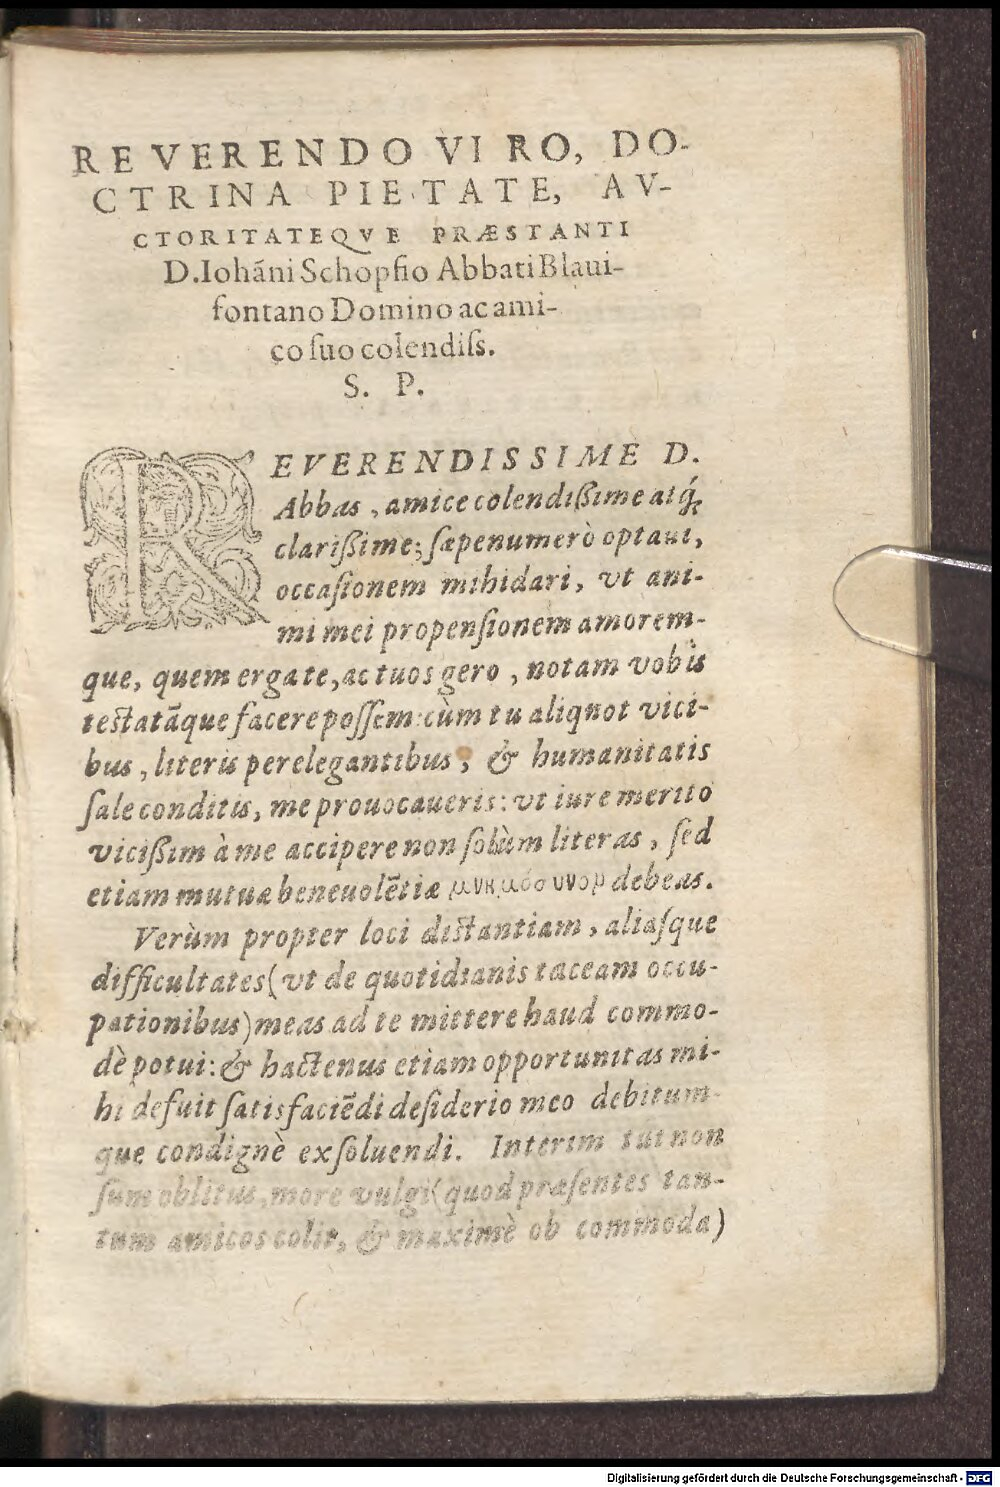 REVERENDO VIRO, DO-
CTRINA PIETATE, AV-
CTORITATEQVE PRÆSTANTI
D. Iohãni Schopfio Abbati Blaui-
fontano Domino ac ami-
co ſuo colendiſs.
S. P.
REVERENDISSIME D.
Abbas, amice colendißime atq́;
clarißime; ſæpenumerò optaui,
occaſionem mihi dari, vt ani-
mi mei propenſionem amorem-
que, quem erga te, ac tuos gero, notam vobis
testatãque facere poſſem: cùm tu aliquot vici-
bus, literis perelegantibus, & humanitatis
ſale conditis, me prouocaueris: vt iure merito
vicißim à me accipere non ſolùm literas, ſed
etiam mutuæ beneuolẽtiæ μνημόσυνον debeas.
Verùm propter loci distantiam, aliaſque
difficultates (vt de quotidianis taceam occu-
pationibus) meas ad te mittere haud commo-
dè potui: & hactenus etiam opportunitas mi-
hi defuit ſatisfaciẽdi deſiderio meo debitum-
que condignè exſoluendi. Interim tui non
ſum oblitus, more vulgi (quod præſentes tan-
tum amicos colit, & maximè ob commoda)
Digitalisierung gefördert durch die Deutsche Forschungsgemeinschaft - DFG